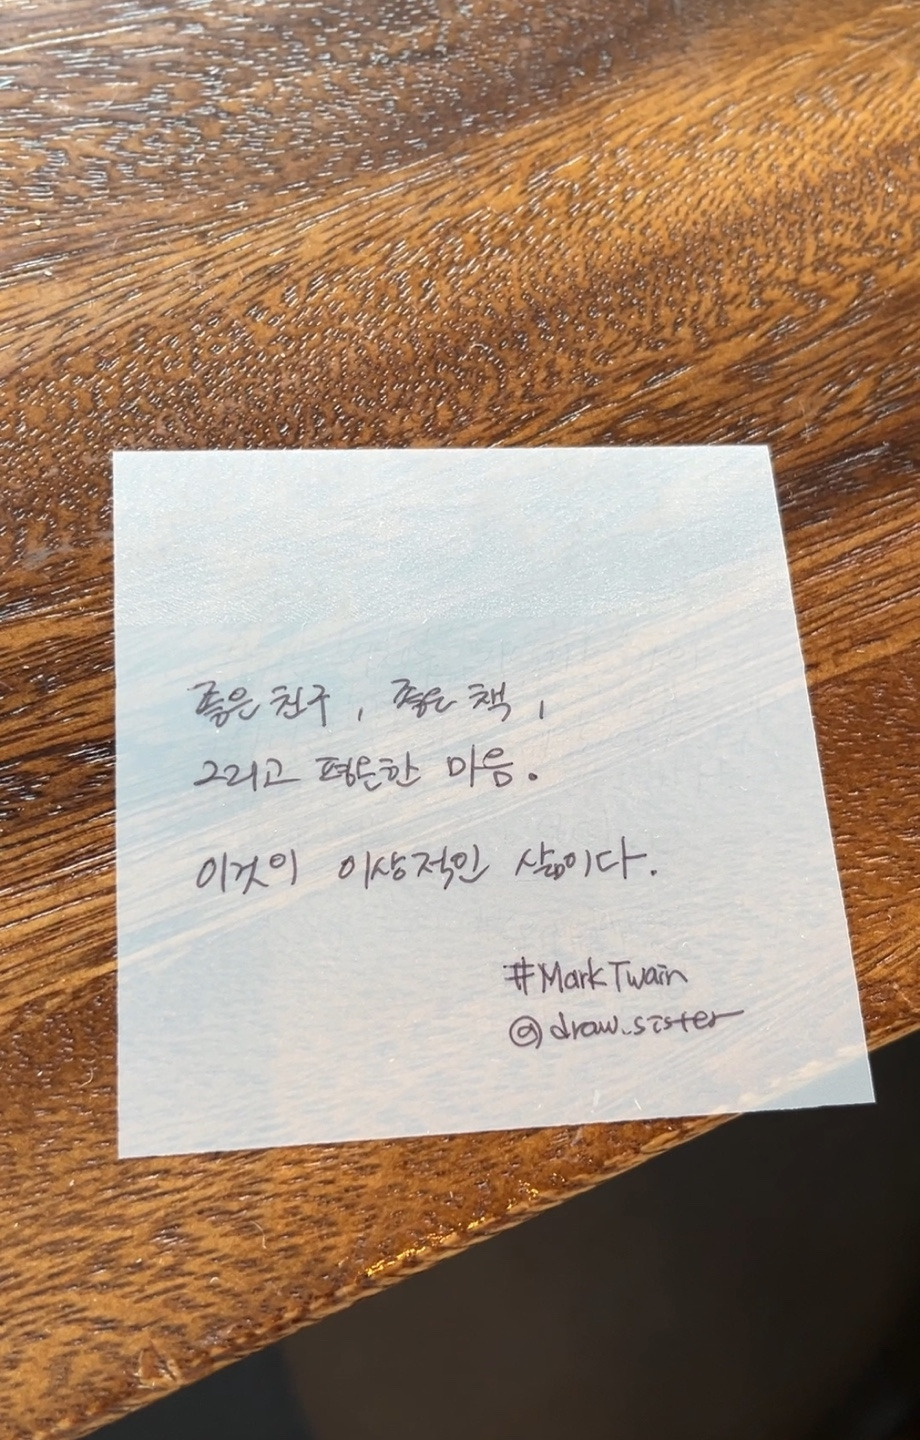 좋은 친구, 좋은 책,
그리고 평온한 마음.
이것이 이상적인 삶이다.
#Mark Twain
@draw.sister